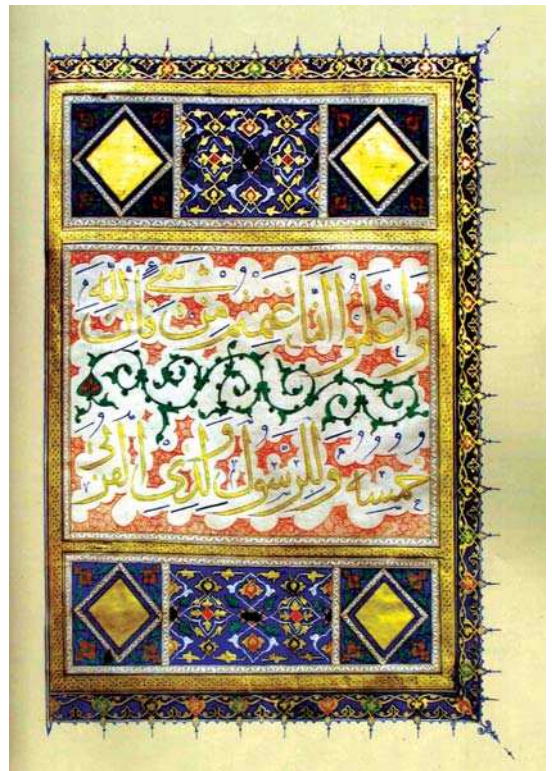 واعلموا انما غنمتم من شئ فان لله
خمسه وللرسول ولذى القربى